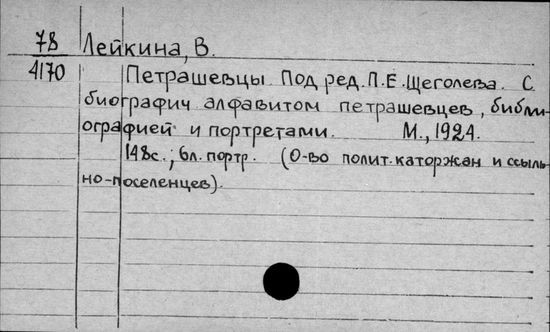 78 Лейкина, В.
4170 Петрашевцы. Под ред. П.Е. Щеголева. С
биографич. алфавитом петрашевцев, библи-
ографией и портретами. М., 1924.
148с.; 6л. портр. (О-во полит. каторжан и ссыль-
но-поселенцев).